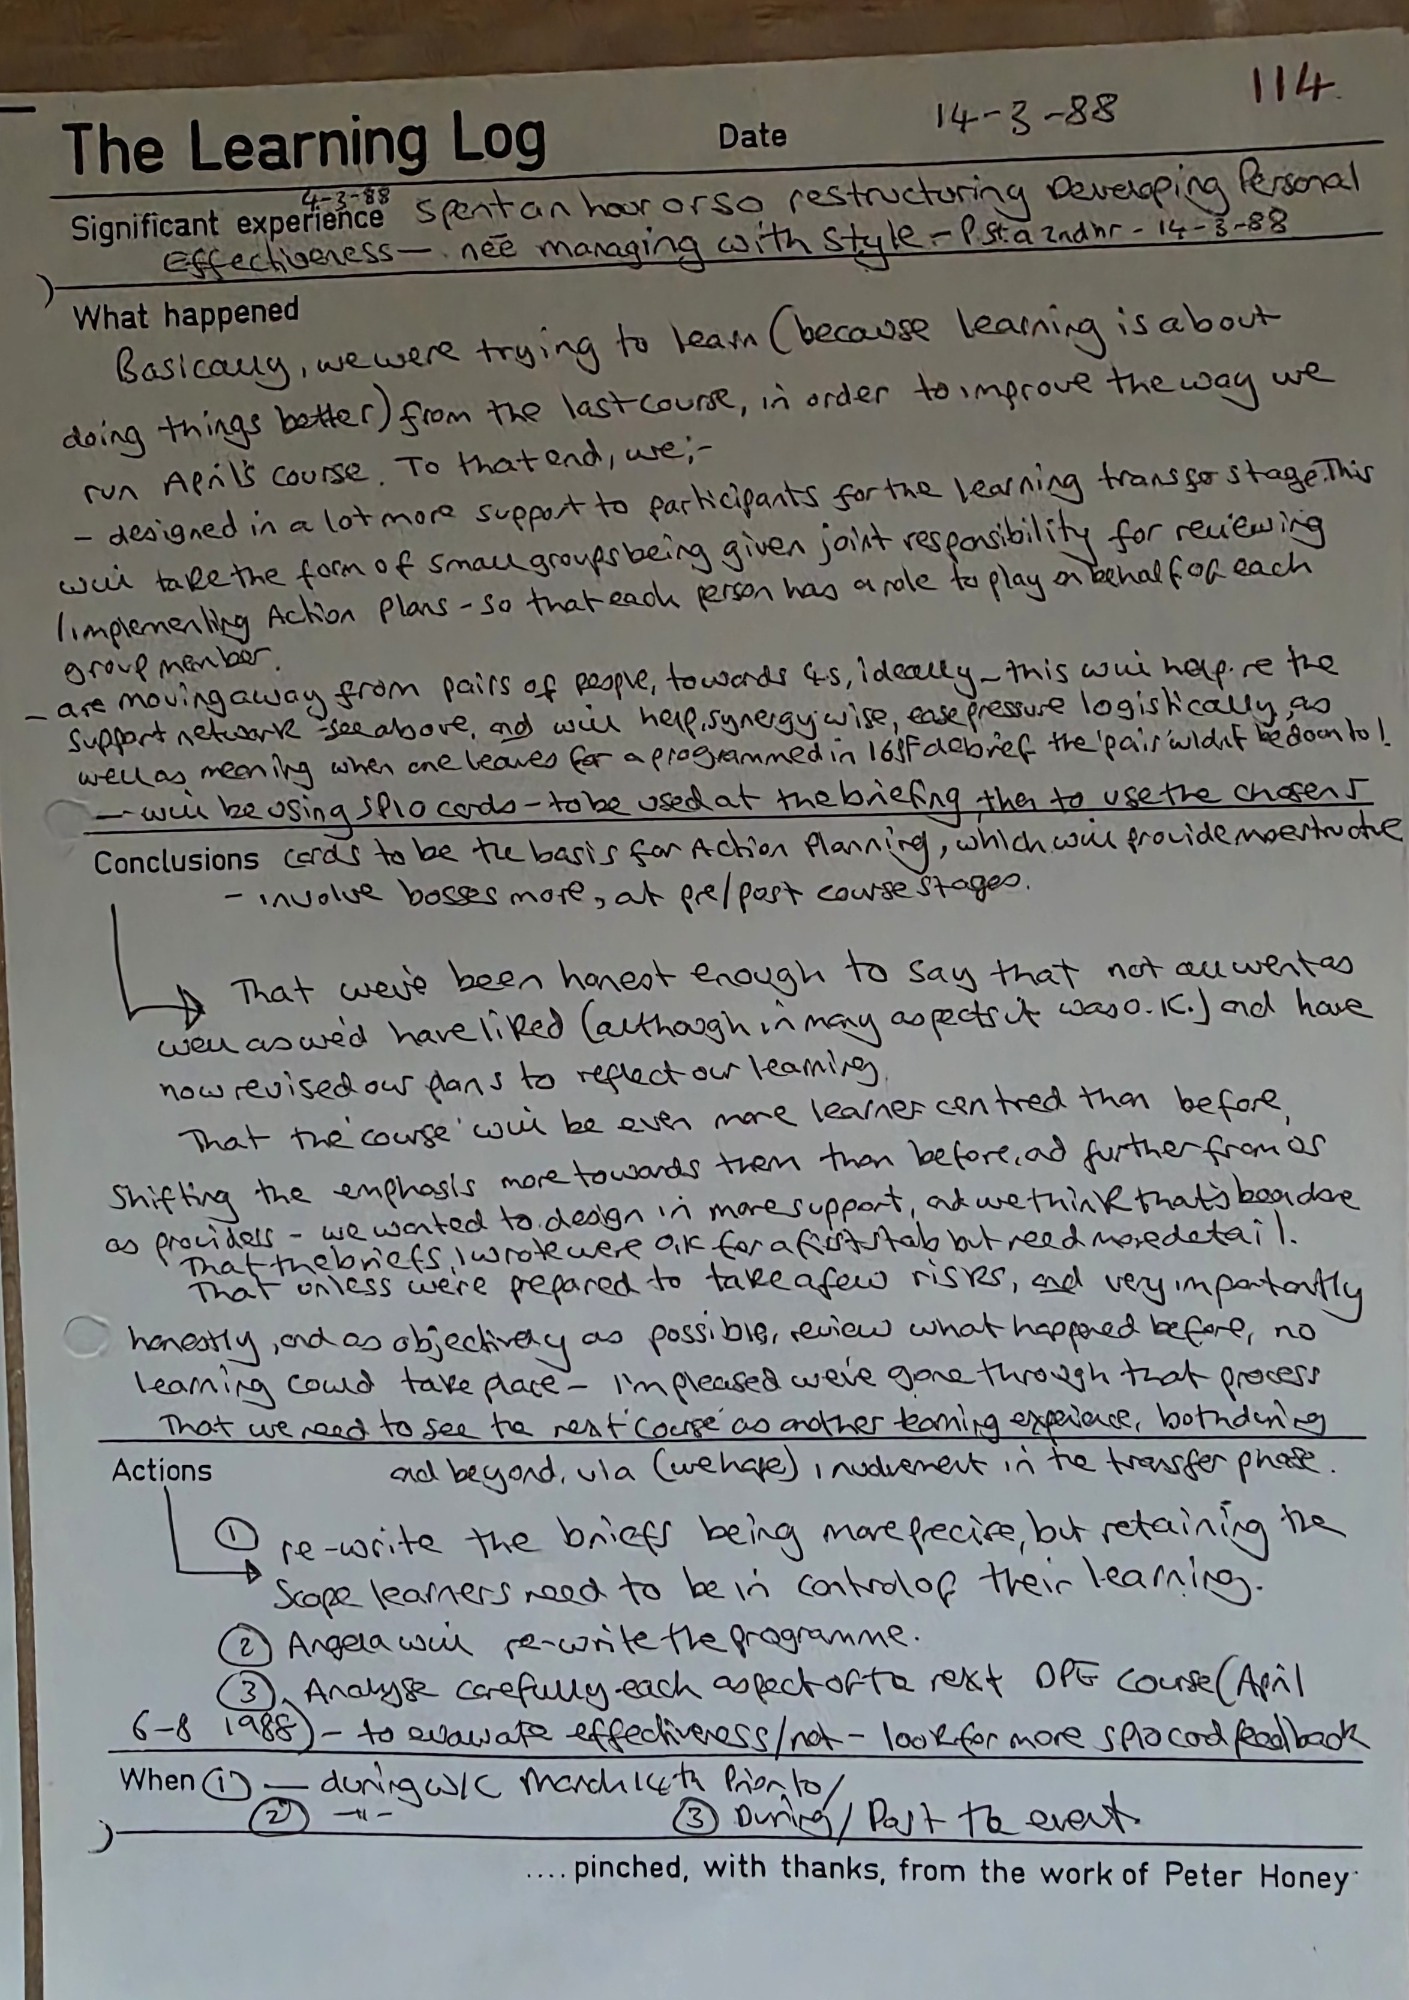 114.
The Learning Log Date 14-3-88
4-3-88
Significant experience Spent an hour or so restructuring Developing Personal
Effectiveness — née managing with style - P.S. a 2nd hr - 14-3-88
What happened
Basically, we were trying to learn (because learning is about
doing things better) from the last course, in order to improve the way we
run April's course. To that end, we;-
- designed in a lot more support to participants for the learning transfer stage. This
will take the form of small groups being given joint responsibility for reviewing
/implementing Action Plans - so that each person has a role to play on behalf of each
group member.
- are moving away from pairs of people, towards 4s, ideally - this will help. re the
support network - see above, and will help, synergy wise, ease pressure logistically, as
well as meaning when one leaves for a programmed in 16PF debrief the 'pair' wldn't be down to 1
- will be using SP10 cards - to be used at the briefing, then to use the chosen 5
Conclusions cards to be the basis for Action Planning, which will provide more structure
- involve bosses more, at pre/post course stages.
That we've been honest enough to say that not all went as
well as we'd have liked (although in many aspects it was O.K.) and have
now revised our plans to reflect our learning.
That the 'course' will be even more learner centred than before,
shifting the emphasis more towards them than before, ad further from us
as providers - we wanted to design in more support, and we think that's been done
That the briefs I wrote were O.K for a first stab but need more detail.
That unless we're prepared to take a few risks, and very importantly
honestly, and as objectively as possible, review what happened before, no
learning could take place - I'm pleased we've gone through that process
That we need to see the next 'course' as another learning experience, both during
Actions ad beyond, via (we hope) involvement in the transfer phase.
① re-write the briefs being more precise, but retaining the
scope learners need to be in control of their learning.
② Angela will re-write the programme.
③ Analyse carefully each aspect of the next DPE course (April
6-8 1988) - to evaluate effectiveness/not - look for more SP10 card feedback
When ① — during W/C March 14th Prior to/
② -"- ③ During/Post the event.
.... pinched, with thanks, from the work of Peter Honey